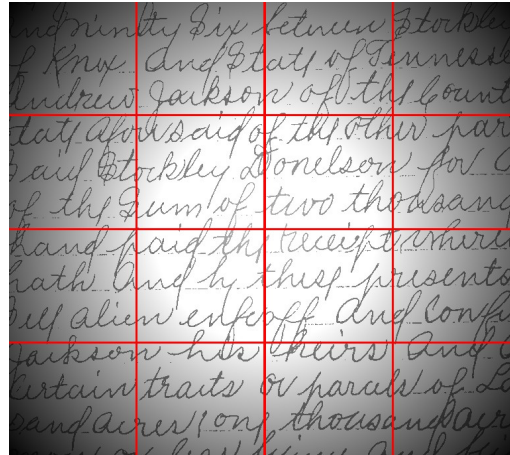 and ninty Six between Stockley
of Knox And State of Tennesse
Andrew Jackson of the Count
State aforesaid of the other par
Said Stockley Donelson for
of the Sum of two thousand
hand paid the receipt where
hath And by these presents
Sell alien enfeoff And Confi
Jackson his heirs And
Certain traits or parcels of La
sand acres one thousand acre